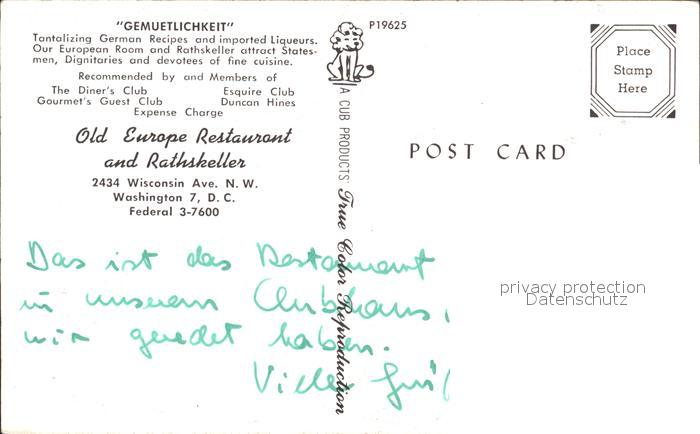 "GEMUETLICHKEIT"
Tantalizing German Recipes and imported Liqueurs.
Our European Room and Rathskeller attract States-
men, Dignitaries and devotees of fine cuisine.
Recommended by and Members of
The Diner's Club Esquire Club
Gourmet's Guest Club Duncan Hines
Expense Charge
Old Europe Restaurant
and Rathskeller
2434 Wisconsin Ave. N. W.
Washington 7, D. C.
Federal 3-7600
P19625
A CUB PRODUCTS True Color Reproduction
Place
Stamp
Here
POST CARD
Das ist das Restaurant
in unserem Clubhaus,
wir geredet haben.
Viele
privacy protection
Datenschutz